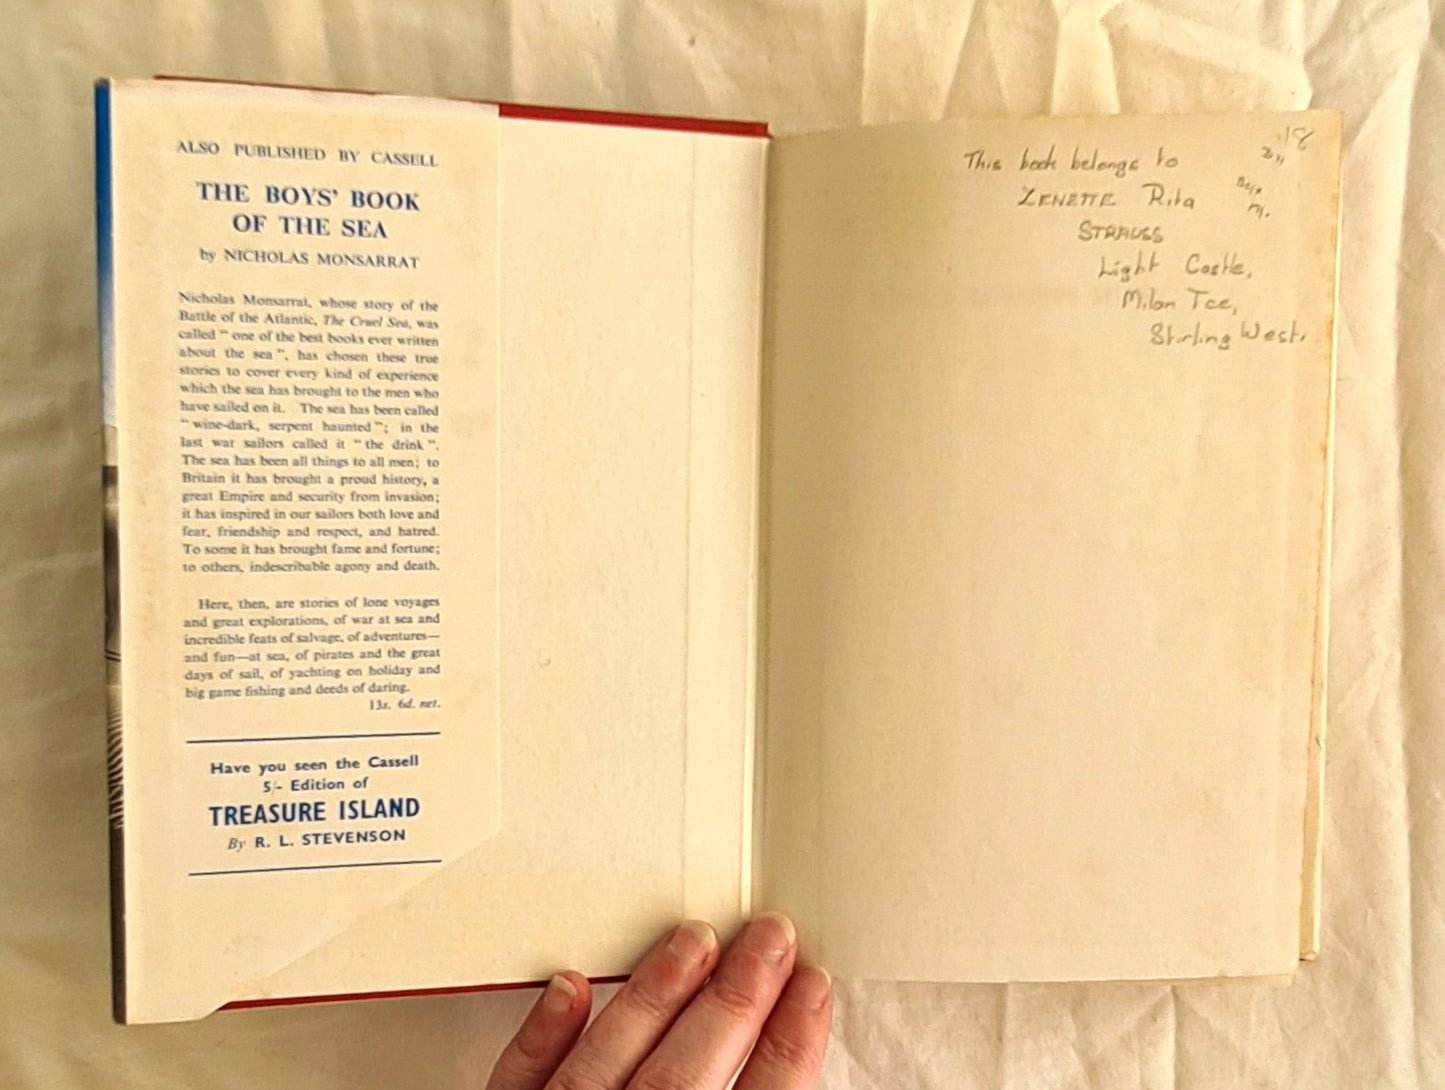 ALSO PUBLISHED BY CASSELL
THE BOYS' BOOK
OF THE SEA
by NICHOLAS MONSARRAT
Nicholas Monsarrat, whose story of the
Battle of the Atlantic, The Cruel Sea, was
called " one of the best books ever written
about the sea ", has chosen these true
stories to cover every kind of experience
which the sea has brought to the men who
have sailed on it. The sea has been called
" wine-dark, serpent haunted "; in the
last war sailors called it " the drink ".
The sea has been all things to all men; to
Britain it has brought a proud history, a
great Empire and security from invasion;
it has inspired in our sailors both love and
fear, friendship and respect, and hatred.
To some it has brought fame and fortune;
to others, indescribable agony and death.
Here, then, are stories of lone voyages
and great explorations, of war at sea and
incredible feats of salvage, of adventures—
and fun—at sea, of pirates and the great
days of sail, of yachting on holiday and
big game fishing and deeds of daring.
13s. 6d. net.
Have you seen the Cassell
5/- Edition of
TREASURE ISLAND
By R. L. STEVENSON
This book belongs to
ZENETTE Rita
STRAUSS
Light Castle,
Milan Tce,
Stirling West.